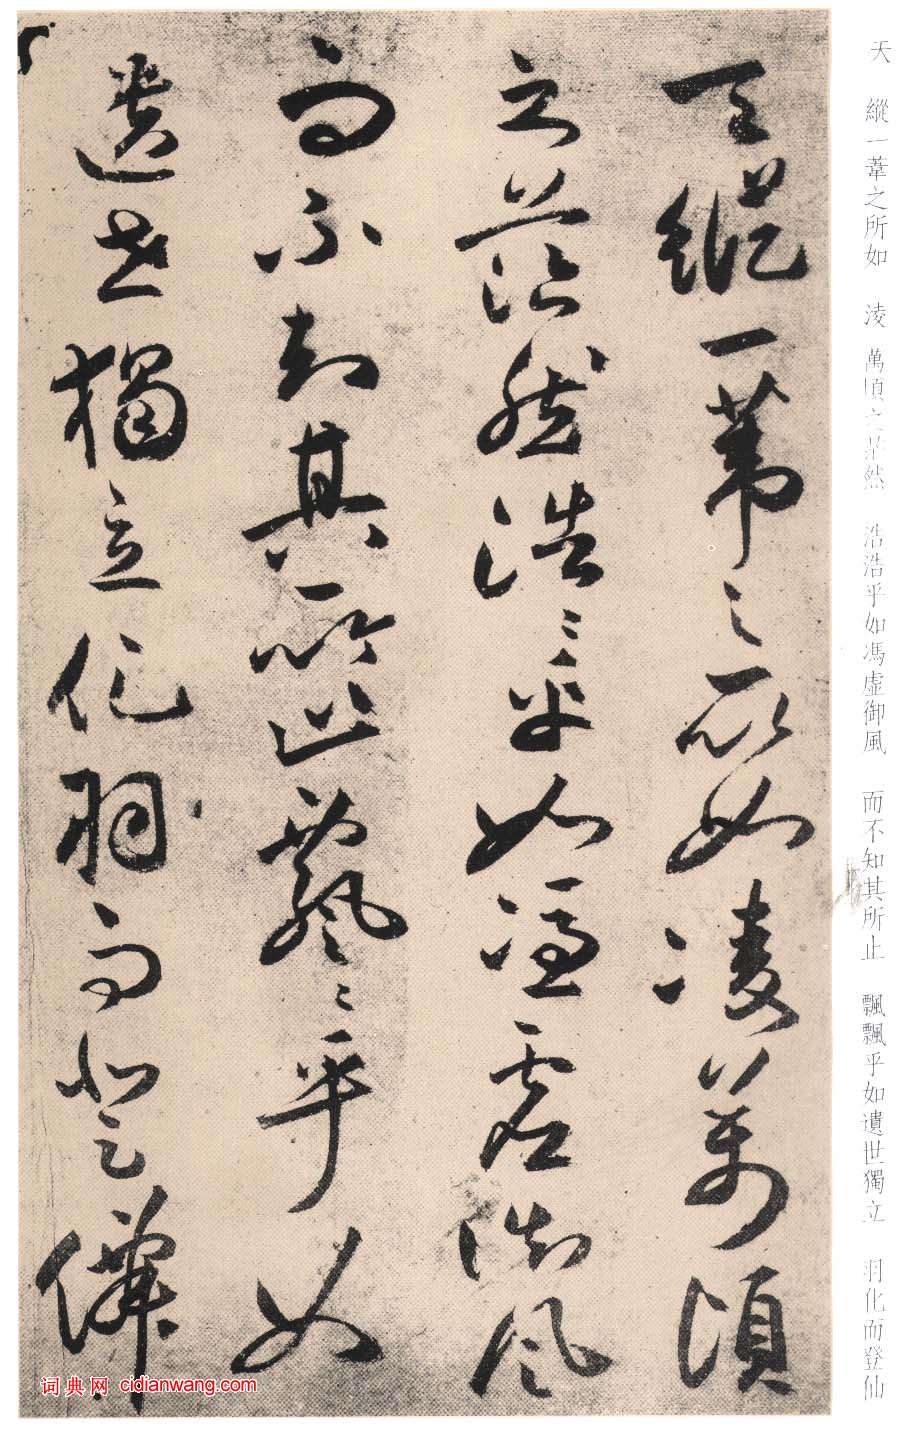 天 縱一葦之所如 淩萬頃之茫然 浩浩乎如馮虛御風 而不知其所止 飄飄乎如遺世獨立 羽化而登仙
天縱一葦之所如淩萬頃
之茫然浩〻乎如馮虛御風
而不知其所止飄〻乎如
遺世獨立化羽而登僊
词典网 cidianwang.com